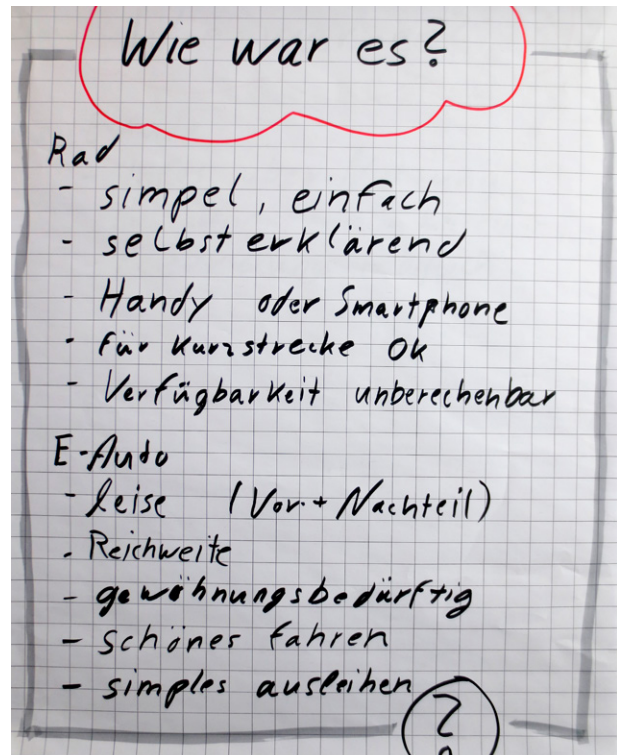 Wie war es?
Rad
- simpel, einfach
- selbsterklärend
- Handy oder Smartphone
- für Kurzstrecke Ok
- Verfügbarkeit unberechenbar
E-Auto
- leise (Vor- + Nachteil)
- Reichweite
- gewöhnungsbedürftig
- schönes fahren
- simples ausleihen
?